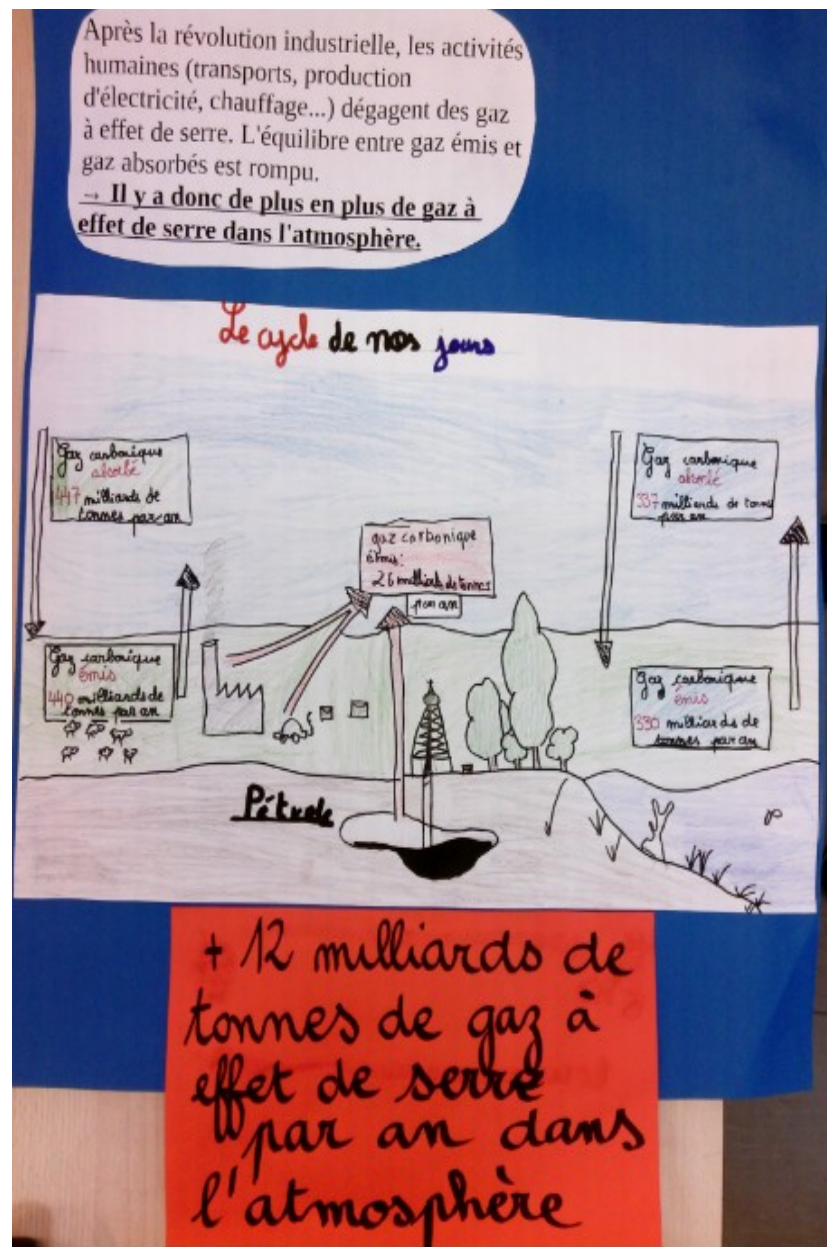 Après la révolution industrielle, les activités
humaines (transports, production
d'électricité, chauffage...) dégagent des gaz
à effet de serre. L'équilibre entre gaz émis et
gaz absorbés est rompu.
→ Il y a donc de plus en plus de gaz à
effet de serre dans l'atmosphère.
Le cycle de nos jours
Gaz carbonique
absorbé
447 milliards de
tonnes par an
Gaz carbonique
absorbé
337 milliards de tonnes
par an
gaz carbonique
émis:
26 milliards de tonnes
par an
Gaz carbonique
émis
440 milliards de
tonnes par an
Gaz carbonique
émis
330 milliards de
tonnes par an
Pétrole
+ 12 milliards de
tonnes de gaz à
effet de serre
par an dans
l'atmosphère